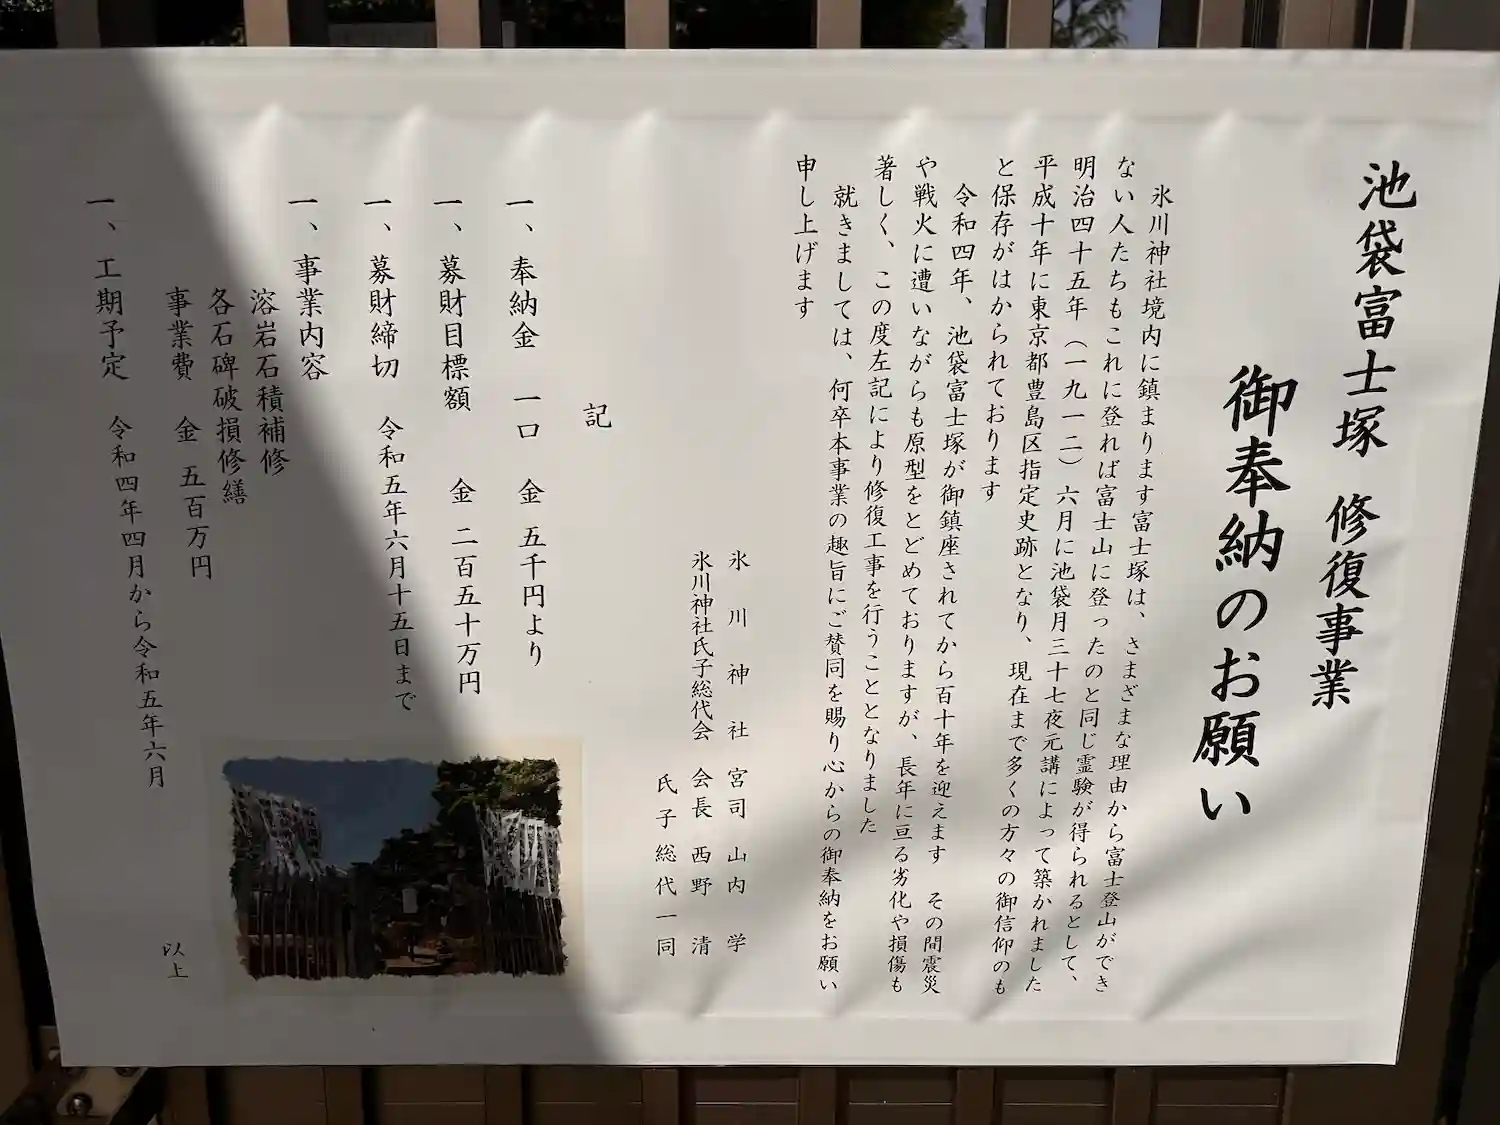 池袋富士塚　修復事業
御奉納のお願い
氷川神社境内に鎮まります富士塚は、さまざまな理由から富士登山ができ
ない人たちもこれに登れば富士山に登ったのと同じ霊験が得られるとして、
明治四十五年（一九一二）六月に池袋月三十七夜元講によって築かれました
平成十年に東京都豊島区指定史跡となり、現在まで多くの方々の御信仰のも
と保存がはかられております
令和四年、池袋富士塚が御鎮座されてから百十年を迎えます　その間震災
や戦火に遭いながらも原型をとどめておりますが、長年に亘る劣化や損傷も
著しく、この度左記により修復工事を行うこととなりました
就きましては、何卒本事業の趣旨にご賛同を賜り心からの御奉納をお願い
申し上げます
氷川神社　宮司　山内　学
氷川神社氏子総代会　会長　西野　清
氏子総代一同
記
一、奉納金　一口　金　五千円より
一、募財目標額　金　二百五十万円
一、募財締切　令和五年六月十五日まで
一、事業内容
溶岩石積補修
各石碑破損修繕
事業費　金　五百万円
一、工期予定　令和四年四月から令和五年六月
以上